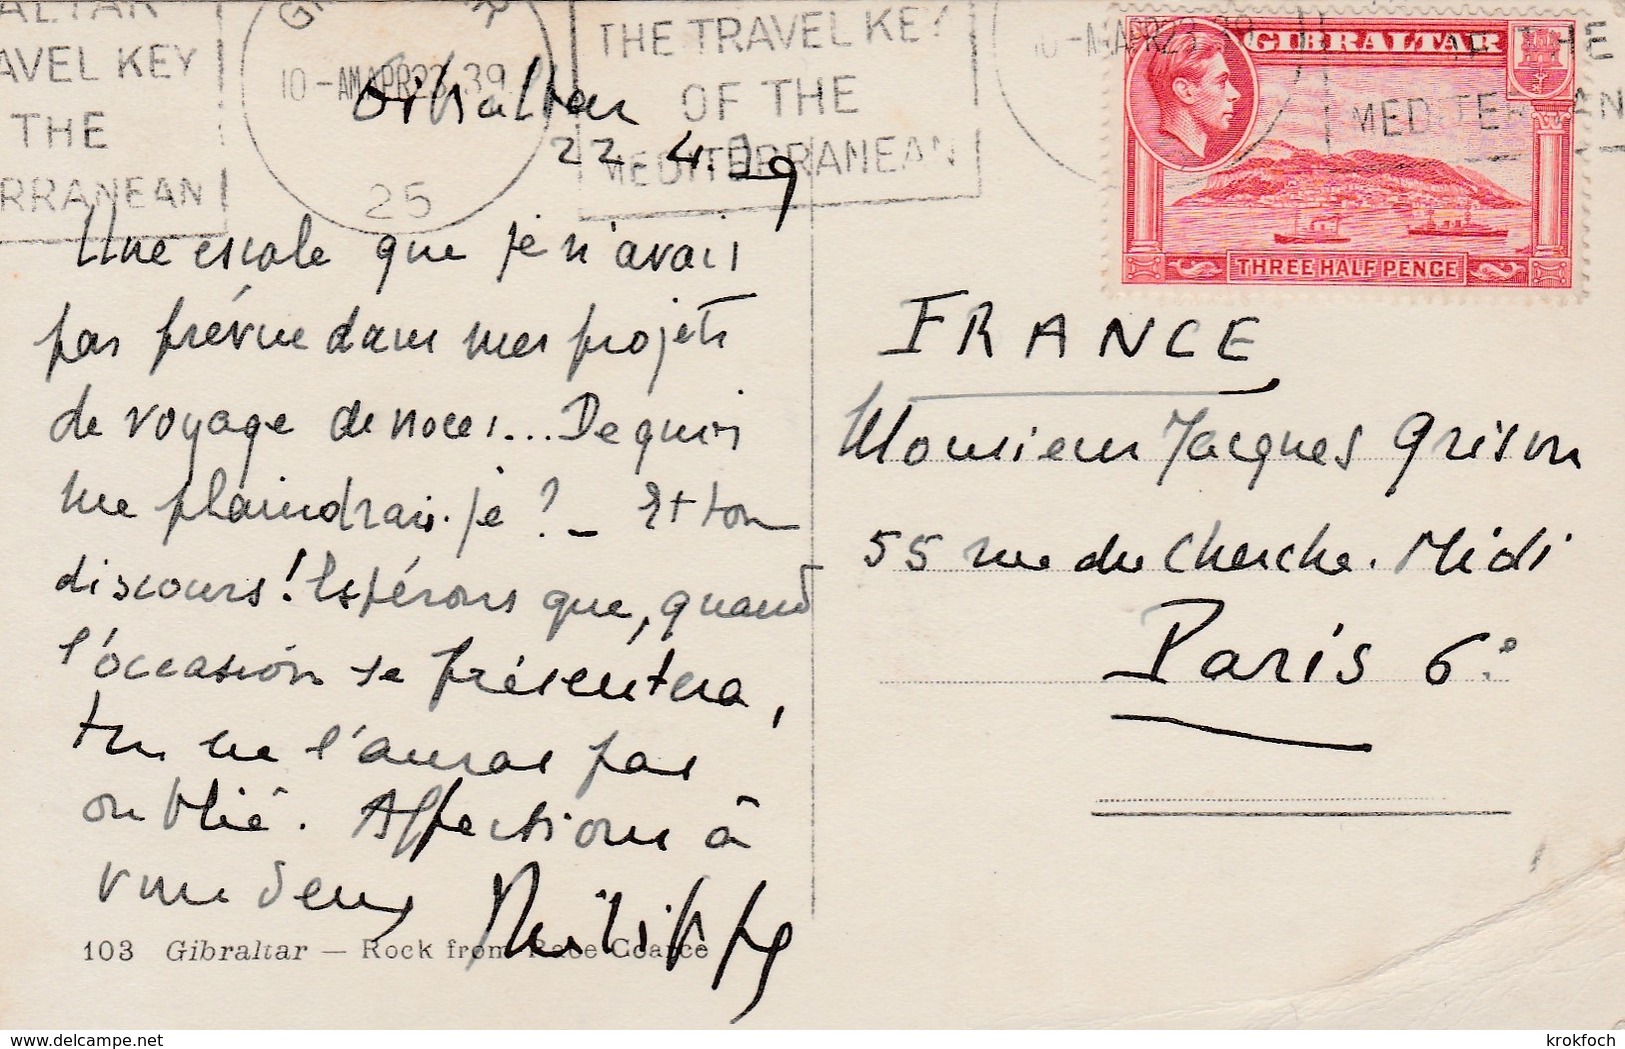 ALTAR
AVEL KEY
THE
RRANEAN
10-AM APR 23 39
25
THE TRAVEL KEY
OF THE
MEDITERRANEAN
10-AM APR 23 39
OF THE
MEDITERRAN
GIBRALTAR
THREE HALF PENCE
Gibraltar
22 4 39
Une escale que je n'avais
pas prévue dans mes projets
de voyage de noces... De quoi
me plaindrais-je ? - Et ton
discours ! Espérons que, quand
l'occasion se présentera,
tu ne l'auras pas
oublié. Affections à
vous deux
Philippe
103 Gibraltar — Rock from Race Coarce
FRANCE
Monsieur Jacques Grison
55 rue du Cherche-Midi
Paris 6e
delcampe.net
krokfoch